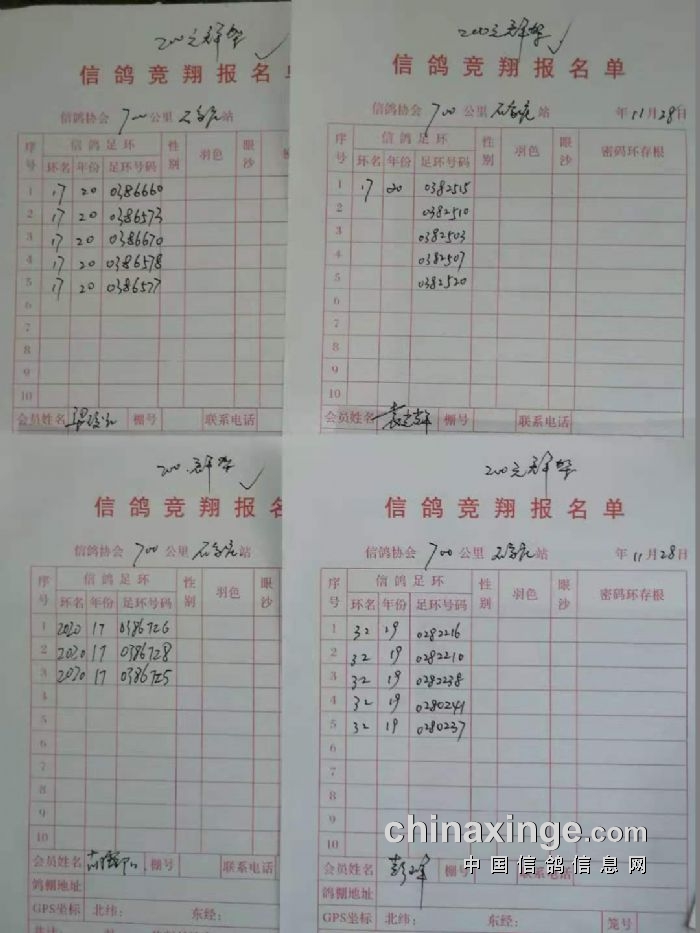 200元群挚
信鸽竞翔报名单
信鸽协会 700公里 石家庄站
序号 信鸽足环 性别 羽色 眼沙
环名 年份 足环号码
1 17 20 0386660
2 17 20 0386573
3 17 20 0386670
4 17 20 0386578
5 17 20 0386577
6
7
8
9
10
会员姓名 棚号 联系电话
信鸽竞翔报名单
信鸽协会 700公里 石家庄站 年11月28日
序号 信鸽足环 性别 羽色 眼沙 密码环存根
环名 年份 足环号码
1 17 20 0382515
2 0382510
3 0382503
4 0382507
5 0382520
6
7
8
9
10
会员姓名 棚号 联系电话
信鸽竞翔报名
信鸽协会 700公里 石家庄站
序号 信鸽足环 性别 羽色 眼沙
环名 年份 足环号码
1 2020 17 0386726
2 2020 17 0386728
3 2020 17 0386725
4
5
6
7
8
9
10
会员姓名 棚号 联系电话
鸽棚地址
GPS坐标 北纬： 东经：
信鸽竞翔报名单
信鸽协会 700公里 石家庄站 年11月28日
序号 信鸽足环 性别 羽色 眼沙 密码环存根
环名 年份 足环号码
1 32 19 0282216
2 32 19 0282210
3 32 19 0282238
4 32 19 0280241
5 32 19 0280237
6
7
8
9
10
会员姓名 棚号 联系电话
鸽棚地址
GPS坐标 北纬： 东经： 笼号
chinaxinge.com
中国信鸽信息网